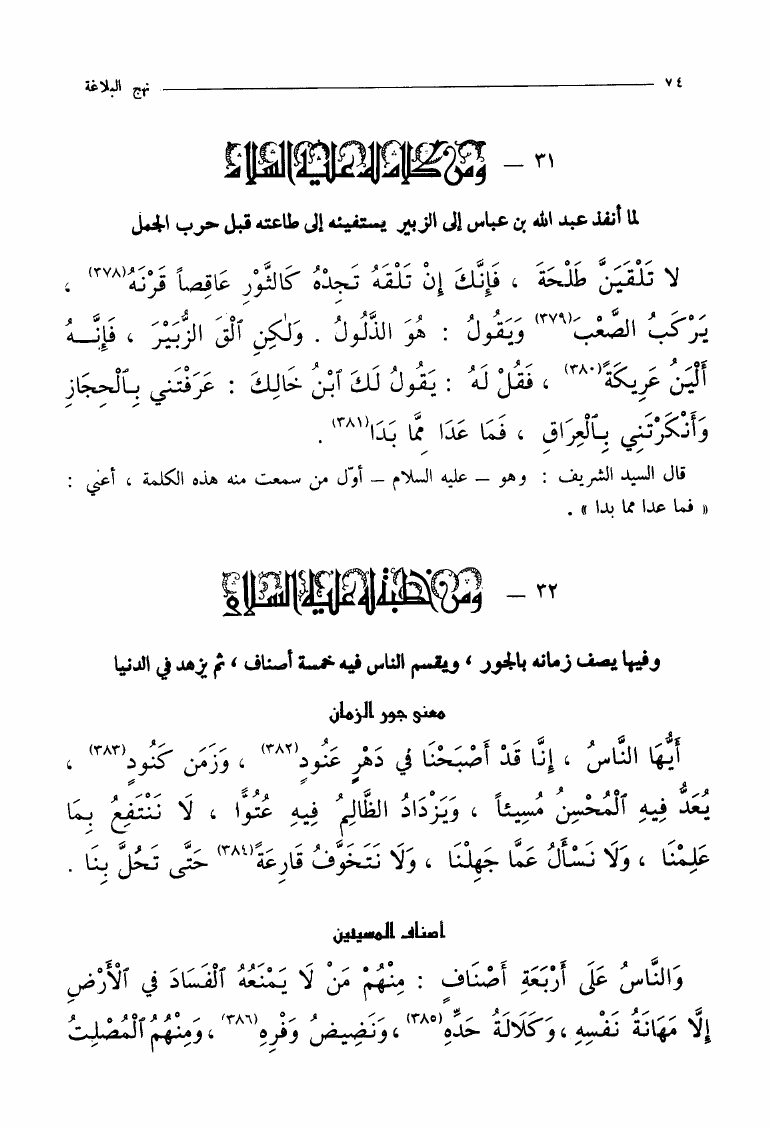 ٧٤ نهج البلاغة
٣١ – ومن كلام له عليه السلام
لما أنفذ عبد الله بن عباس إلى الزبير يستفيئه إلى طاعته قبل حرب الجمل
لَا تَلْقَيَنَّ طَلْحَةَ ، فَإِنَّكَ إِنْ تَلْقَهُ تَجِدْهُ كَالثَّوْرِ عَاقِصاً قَرْنَهُ(٣٧٨) ،
يَرْكَبُ الصَّعْبَ(٣٧٩) وَيَقُولُ : هُوَ الذَّلُولُ . وَلٰكِنِ ٱلْقَ الزُّبَيْرَ ، فَإِنَّـهُ
أَلْيَنُ عَرِيكَةً(٣٨٠) ، فَقُلْ لَهُ : يَقُولُ لَكَ ٱبْنُ خَالِكَ : عَرَفْتَنِي بِـالْحِجَازِ
وَأَنْكَرْتَنِي بِـالْعِرَاقِ ، فَمَا عَدَا مِمَّا بَدَا(٣٨١) .
قال السيد الشريف : وهو – عليه السلام – أوّل من سمعت منه هذه الكلمة ، أعني :
« فما عدا مما بدا » .
٣٢ – ومن خطبة له عليه السلام
وفيها يصف زمانه بالجور ، ويقسم الناس فيه خمسة أصناف ، ثم يزهد في الدنيا
معنى جور الزمان
أَيُّهَا النَّاسُ ، إِنَّا قَدْ أَصْبَحْنَا فِي دَهْرٍ عَنُودٍ(٣٨٢) ، وَزَمَنٍ كَنُودٍ(٣٨٣) ،
يُعَدُّ فِيهِ ٱلْمُحْسِنُ مُسِيئاً ، وَيَزْدَادُ الظَّالِمُ فِيهِ عُتُوًّا ، لَا نَنْتَفِعُ بِمَا
عَلِمْنَا ، وَلَا نَسْأَلُ عَمَّا جَهِلْنَا ، وَلَا نَتَخَوَّفُ قَارِعَةً(٣٨٤) حَتَّى تَحُلَّ بِنَا .
أصناف المسيئين
وَالنَّاسُ عَلَى أَرْبَعَةِ أَصْنَافٍ : مِنْهُمْ مَنْ لَا يَمْنَعُهُ ٱلْفَسَادَ فِي ٱلْأَرْضِ
إِلَّا مَهَانَةُ نَفْسِهِ ، وَكَلَالَةُ حَدِّهِ(٣٨٥) ، وَنَضِيضُ وَفْرِهِ(٣٨٦) ، وَمِنْهُمُ ٱلْمُصْلِتُ